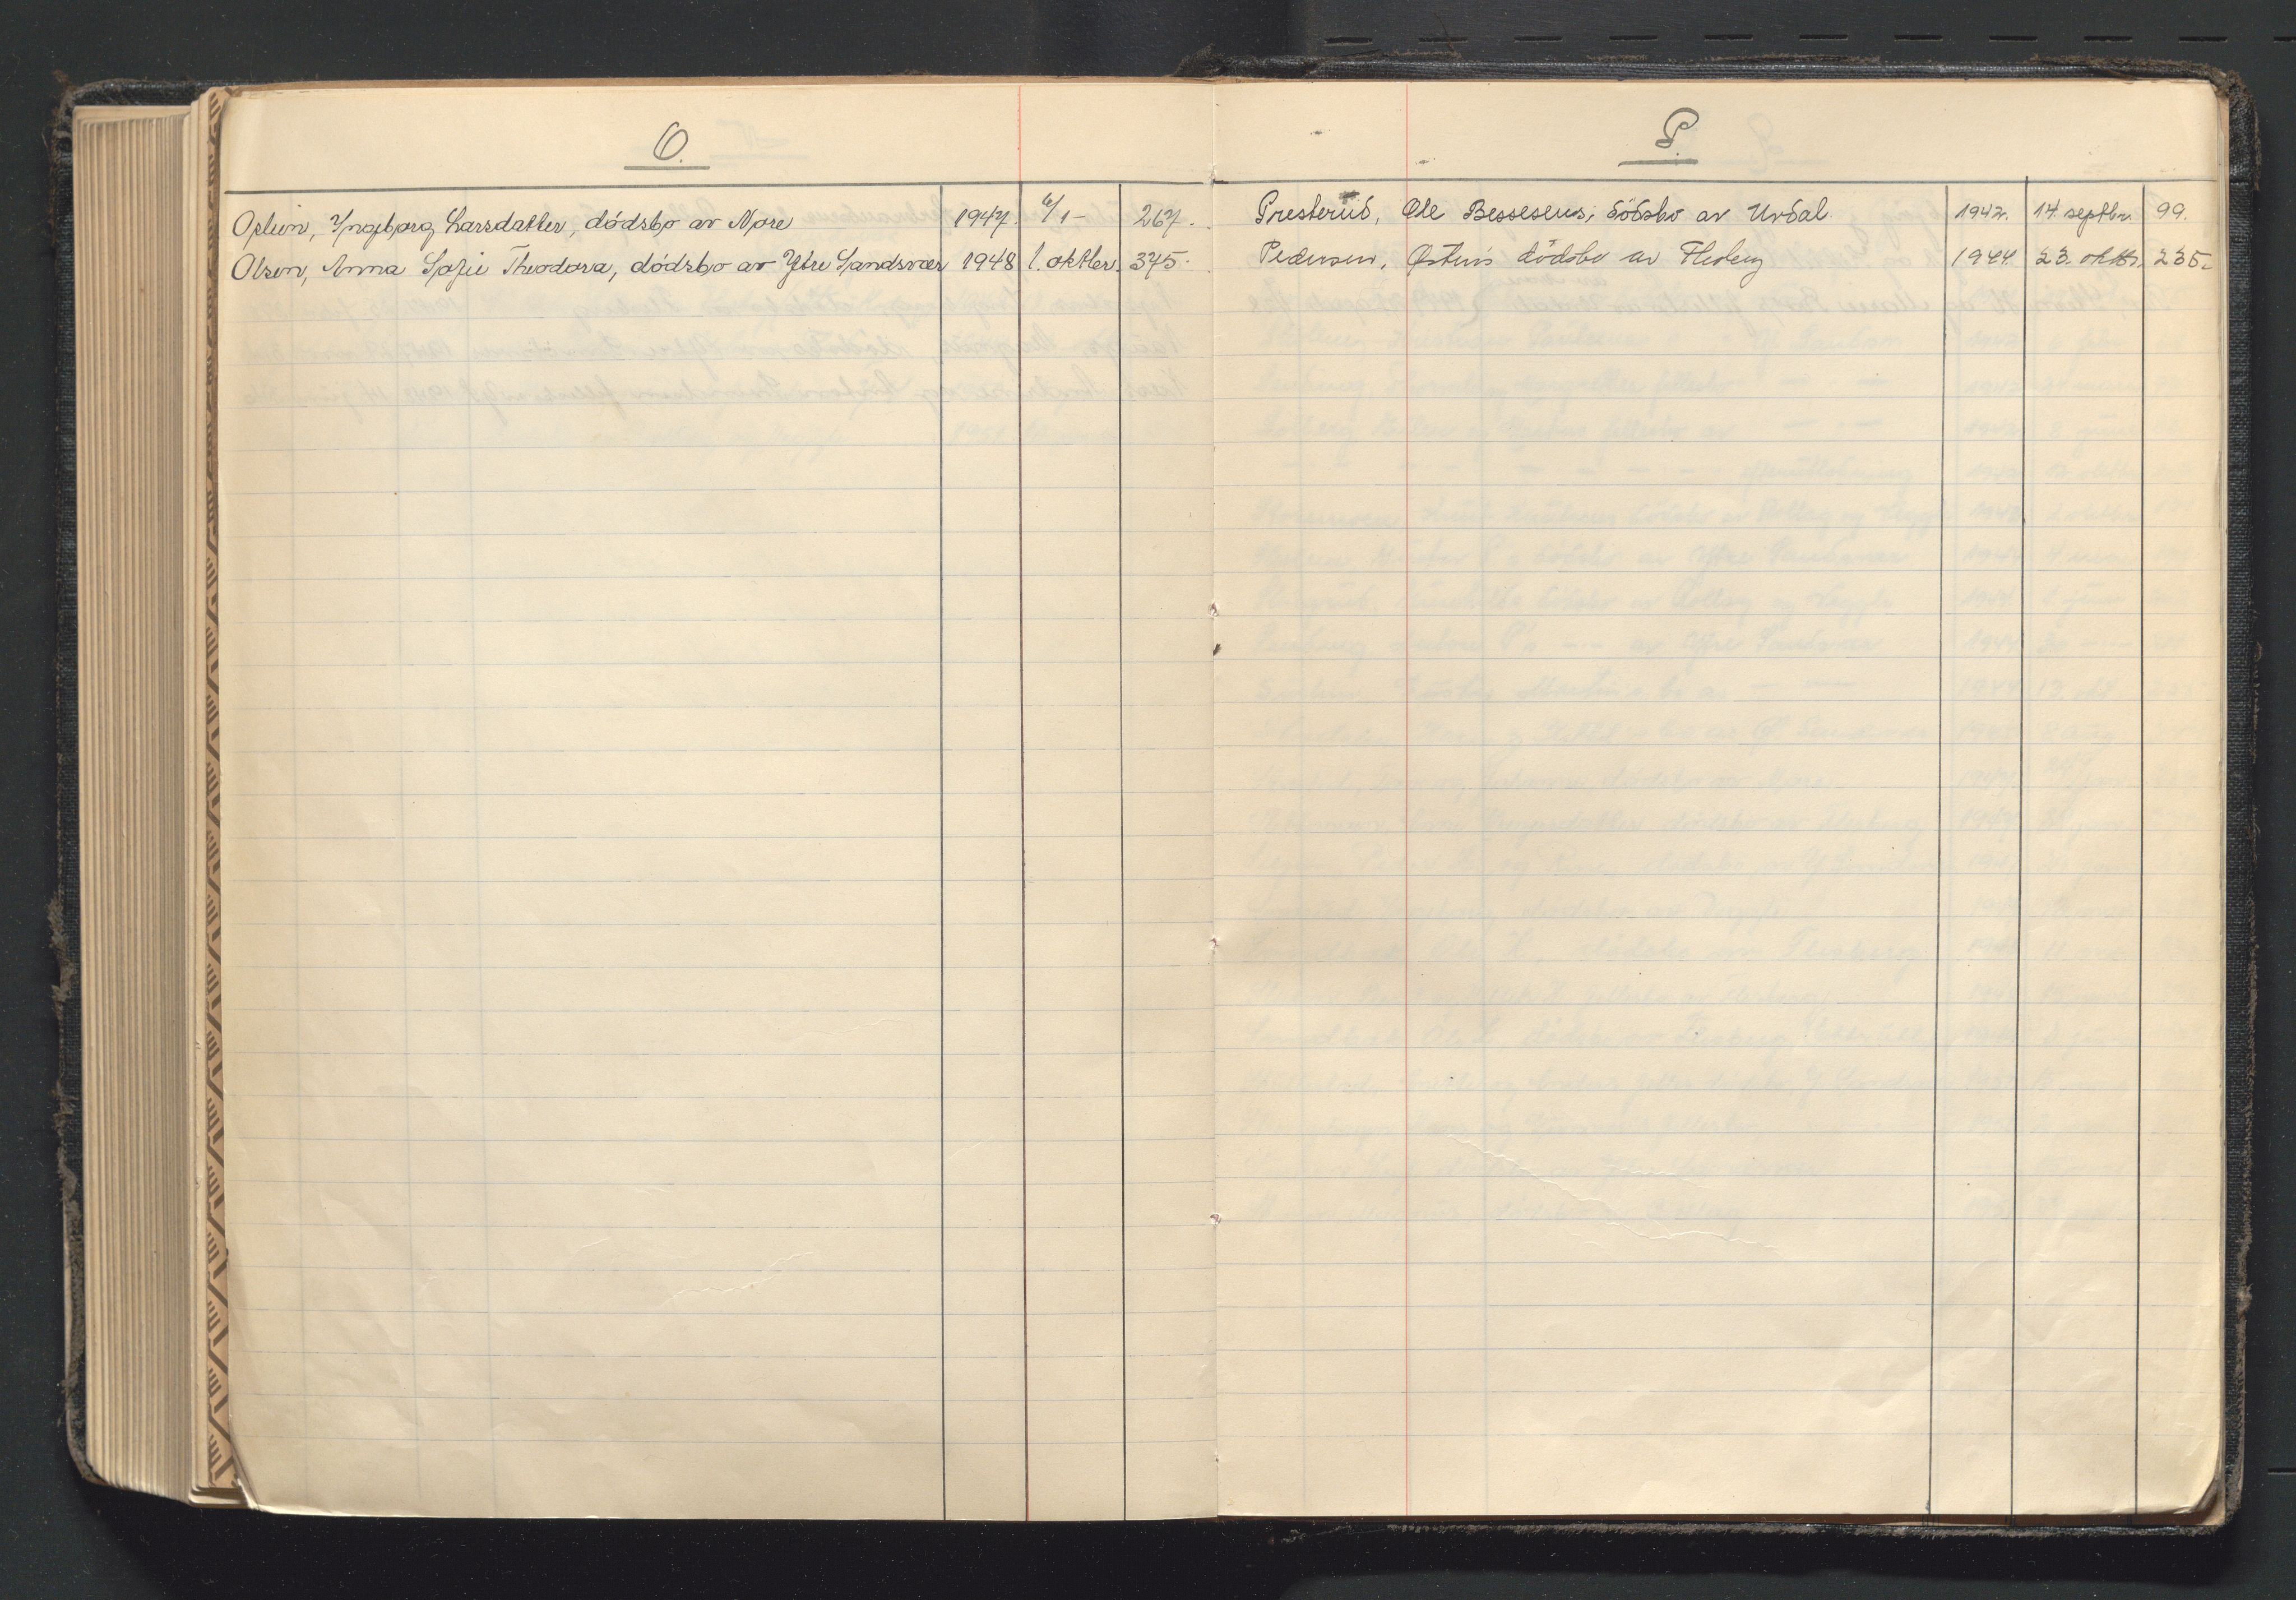 O.
Opheim, Ingeborg Larsdatter, dødsbo av Nore 1947. 6/1- 267.
Olsen, Anna Sofie Theodora, dødsbo av Ytre Sandsvær 1948 1. oktbr. 345.
P.
Presterud, Ole Bessesens, dödsbo av Uvdal. 1942. 14. septbr. 99.
Pedersen, dödsbo av Flesberg 1944. 23. oktbr. 235.